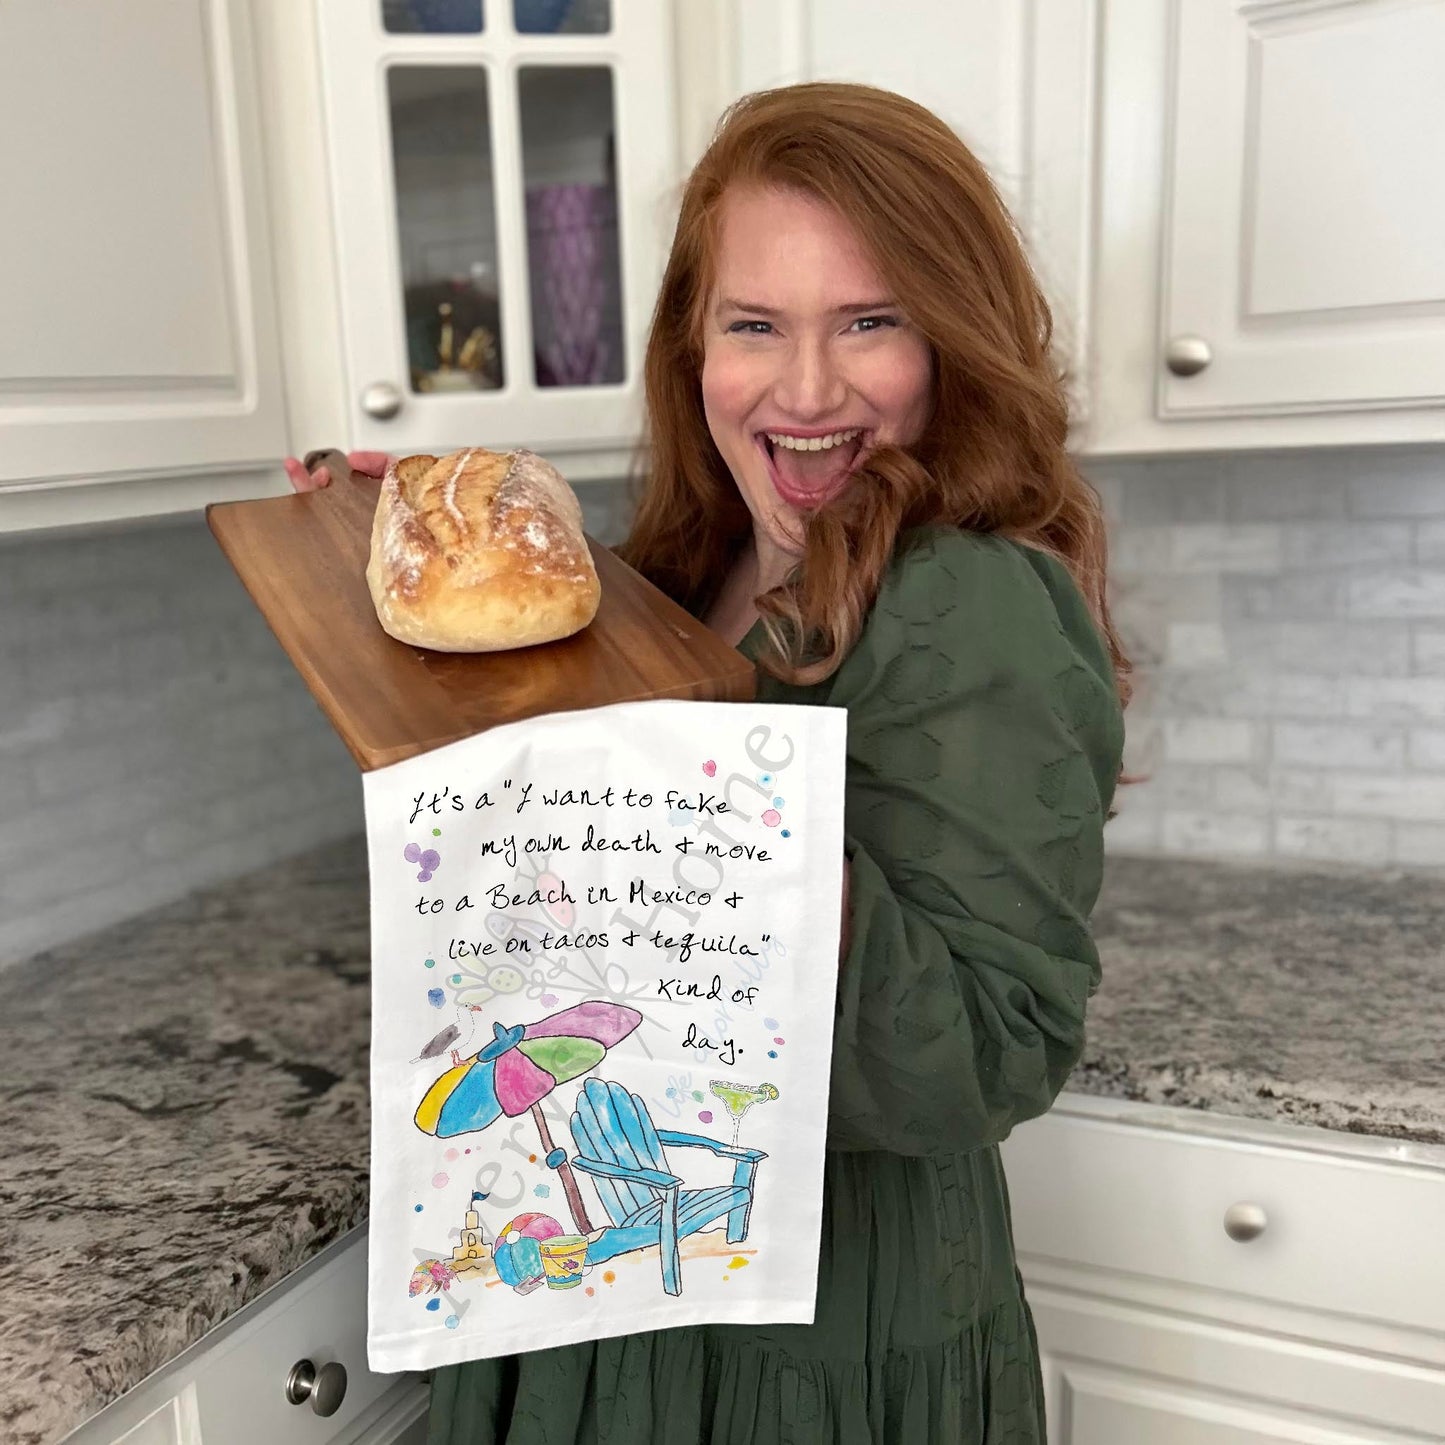 It's a "I want to fake
my own death + move
to a Beach in Mexico +
live on tacos + tequila"
kind of
day.
Avery Home
life colorfully